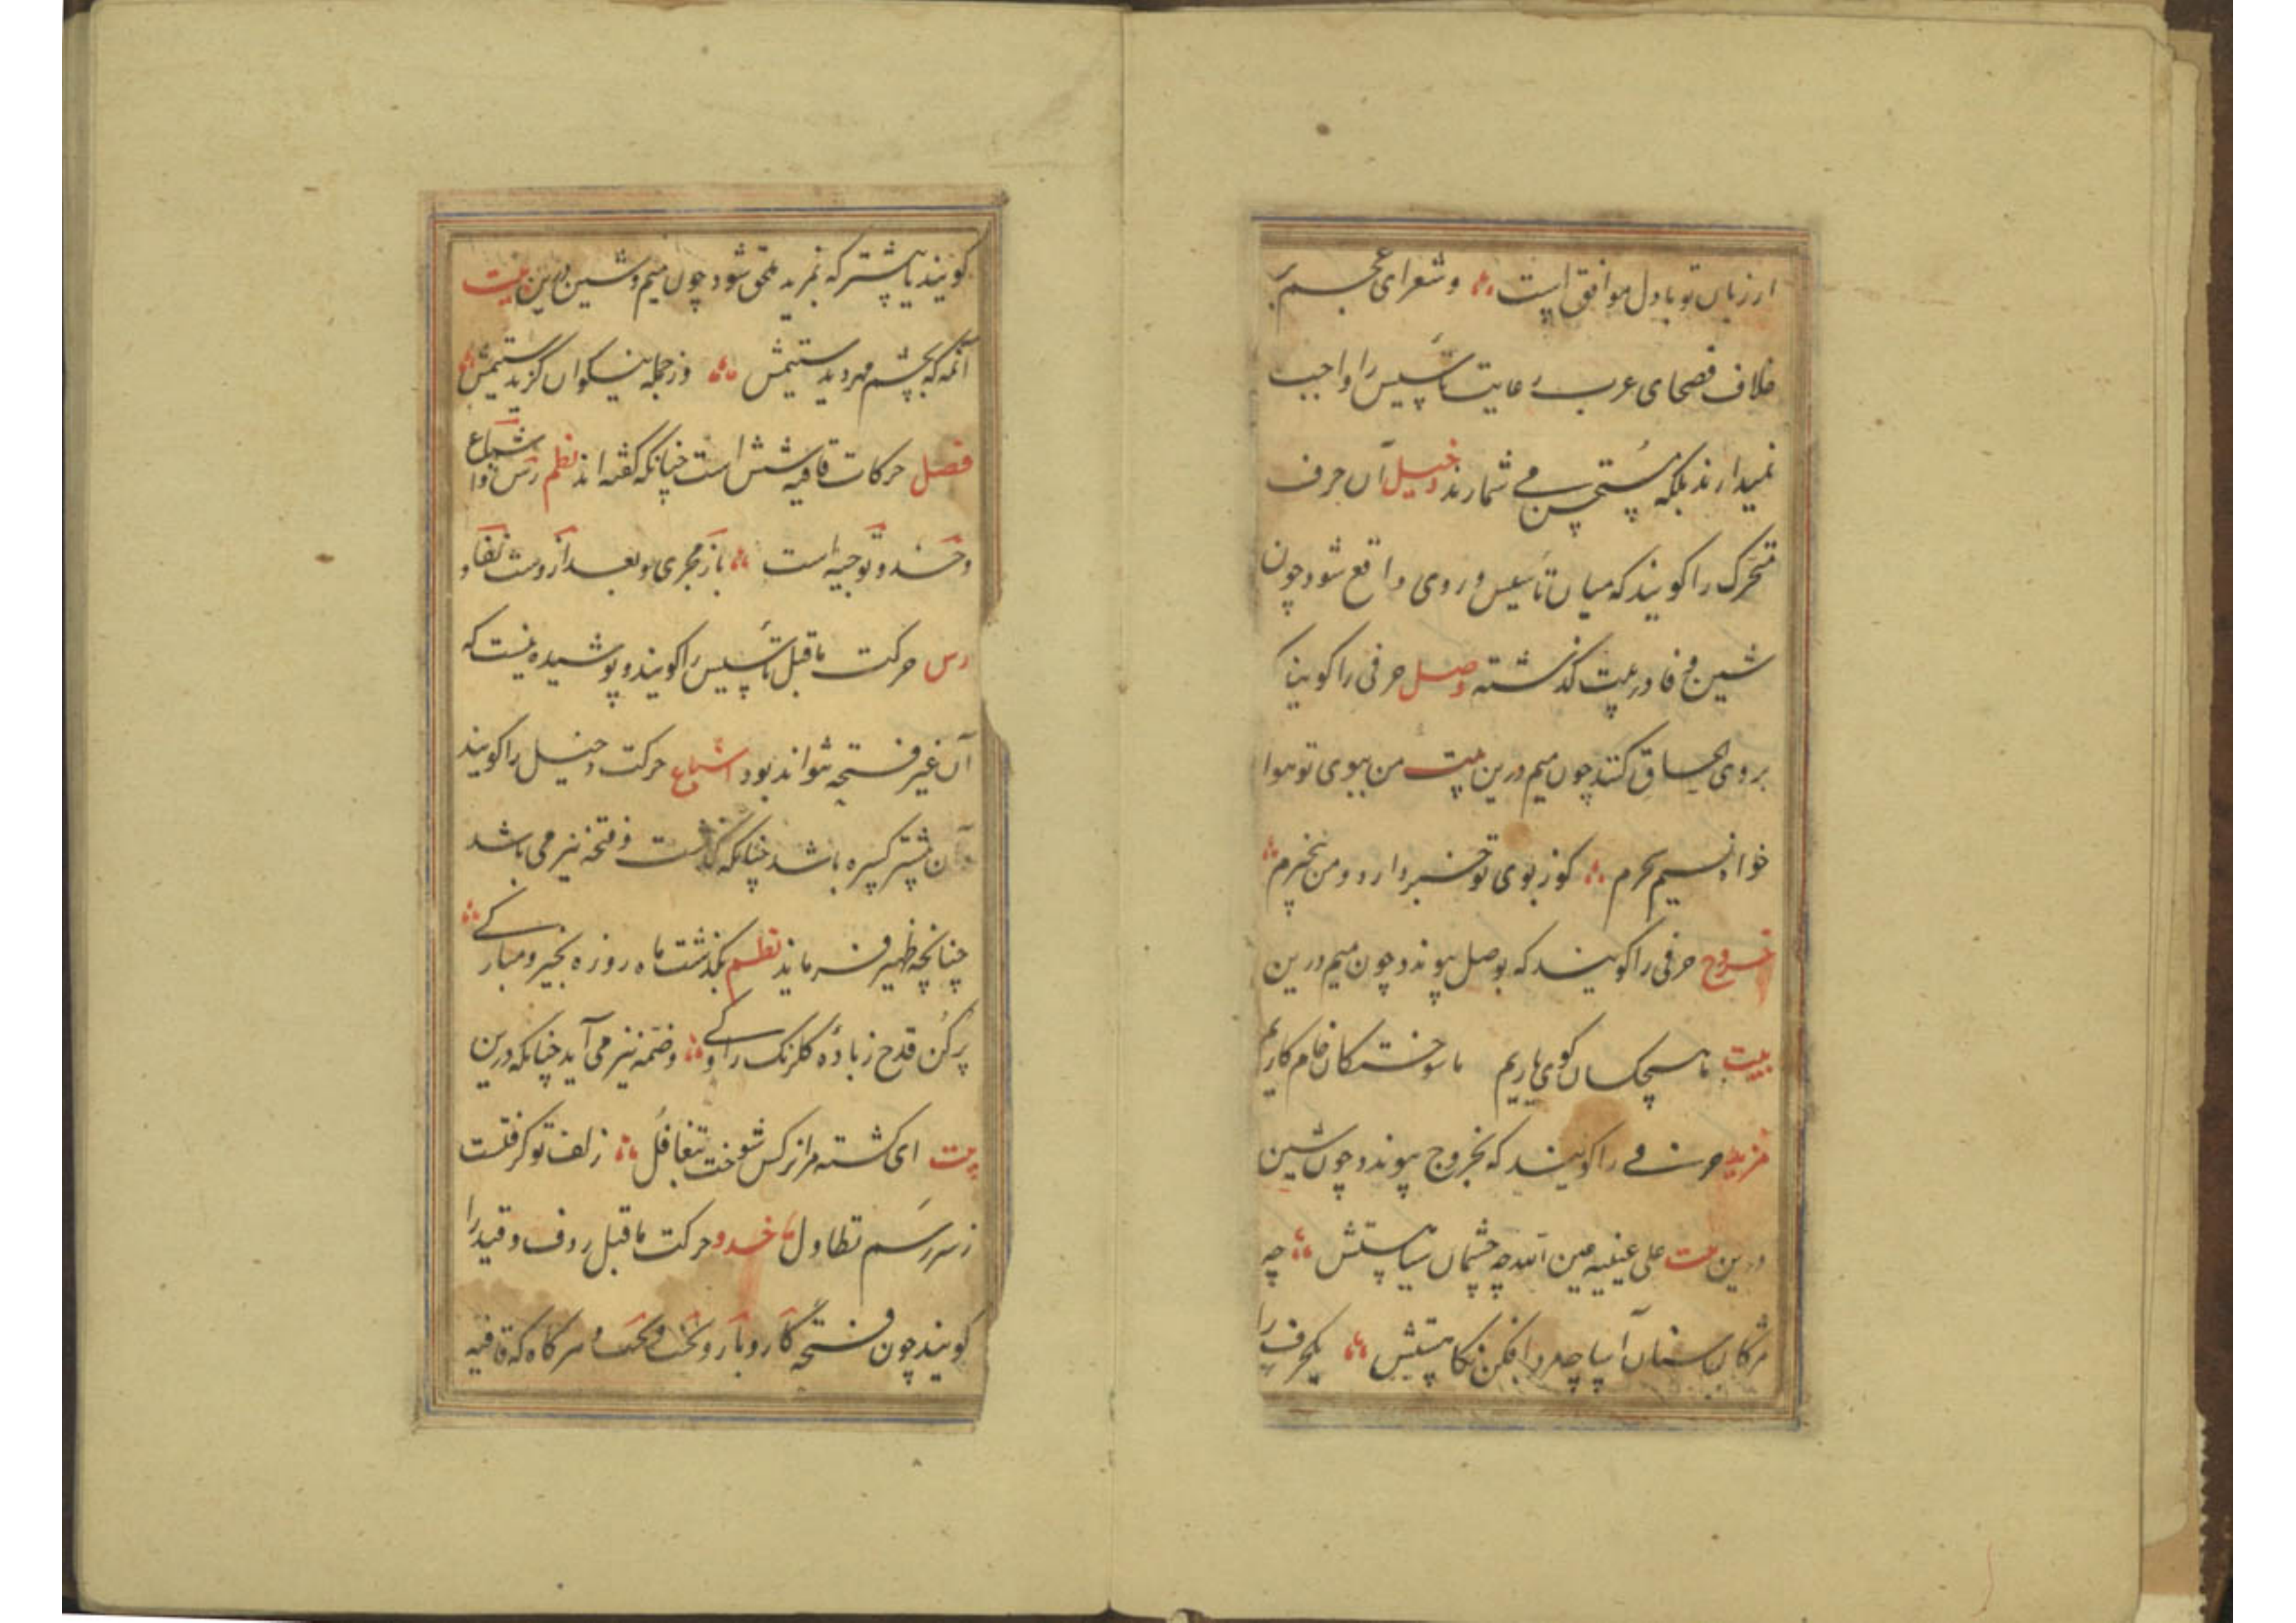 ار زبان تو با دل موافق است وشعرای عجم بر
خلاف فصحای عرب رعایت تأسیس را واجب
نمیدارند بلکه مستحسن می شمارند دخیل آن حرف
متحرک را کویند که میان تأسیس و روی واقع شود چون
شین و فا در بیت کذشته وصل حرفی را کویند که
بروی الحاق کنند چون میم درین بیت من ببوی تو هوا
خواه نسیم سحرم کو ز بوی تو خبر دارد و من بیخبرم
خروج حرفی را کویند که بوصل پیوندد چون میم درین
بیت ما هیچکسان کوی یاریم ما سوختکان خام کاریم
مزید حرفی را کویند که بخروج پیوندد چون شین
درین بیت علی عینیه عین الله چه چشمان سیاهستش چه
مژکان سنان آسا چه مرد افکن نکاهستش یکحرف را
کویند یا بیشتر که بمزید ملحق شود چون میم و شین درین بیت
آنمه که بچشم مهر دیدستیمش وز جمله نیکوان کزیدستیمش
فصل حرکات قافیه شش است چنانکه کفته اند نظم رس و اشباع
و حذو و توجیه است باز مجری و بعد ازوست نفاذ و
رس حرکت ماقبل تأسیس را کویند و پوشیده نیست که
آن غیر فتحه نتواند بود اشباع حرکت دخیل را کویند
آن بیشتر کسره باشد چنانکه کذشت و فتحه نیز می باشد
چنانچه ظهیر فرماید نظم بکذشت ماه روزه بخیر و مبارکی
پر کن قدح ز باده کلرنک راوکی و ضمه نیز می آید چنانکه درین
بیت ای کشته مرا نرکس شوخت بتغافل زلف تو کرفتست
ز سر رسم تطاول حذو حرکت ماقبل ردف و قید را
کویند چون فتحه کار و بار و تخت و بخت و هرکاه که قافیه